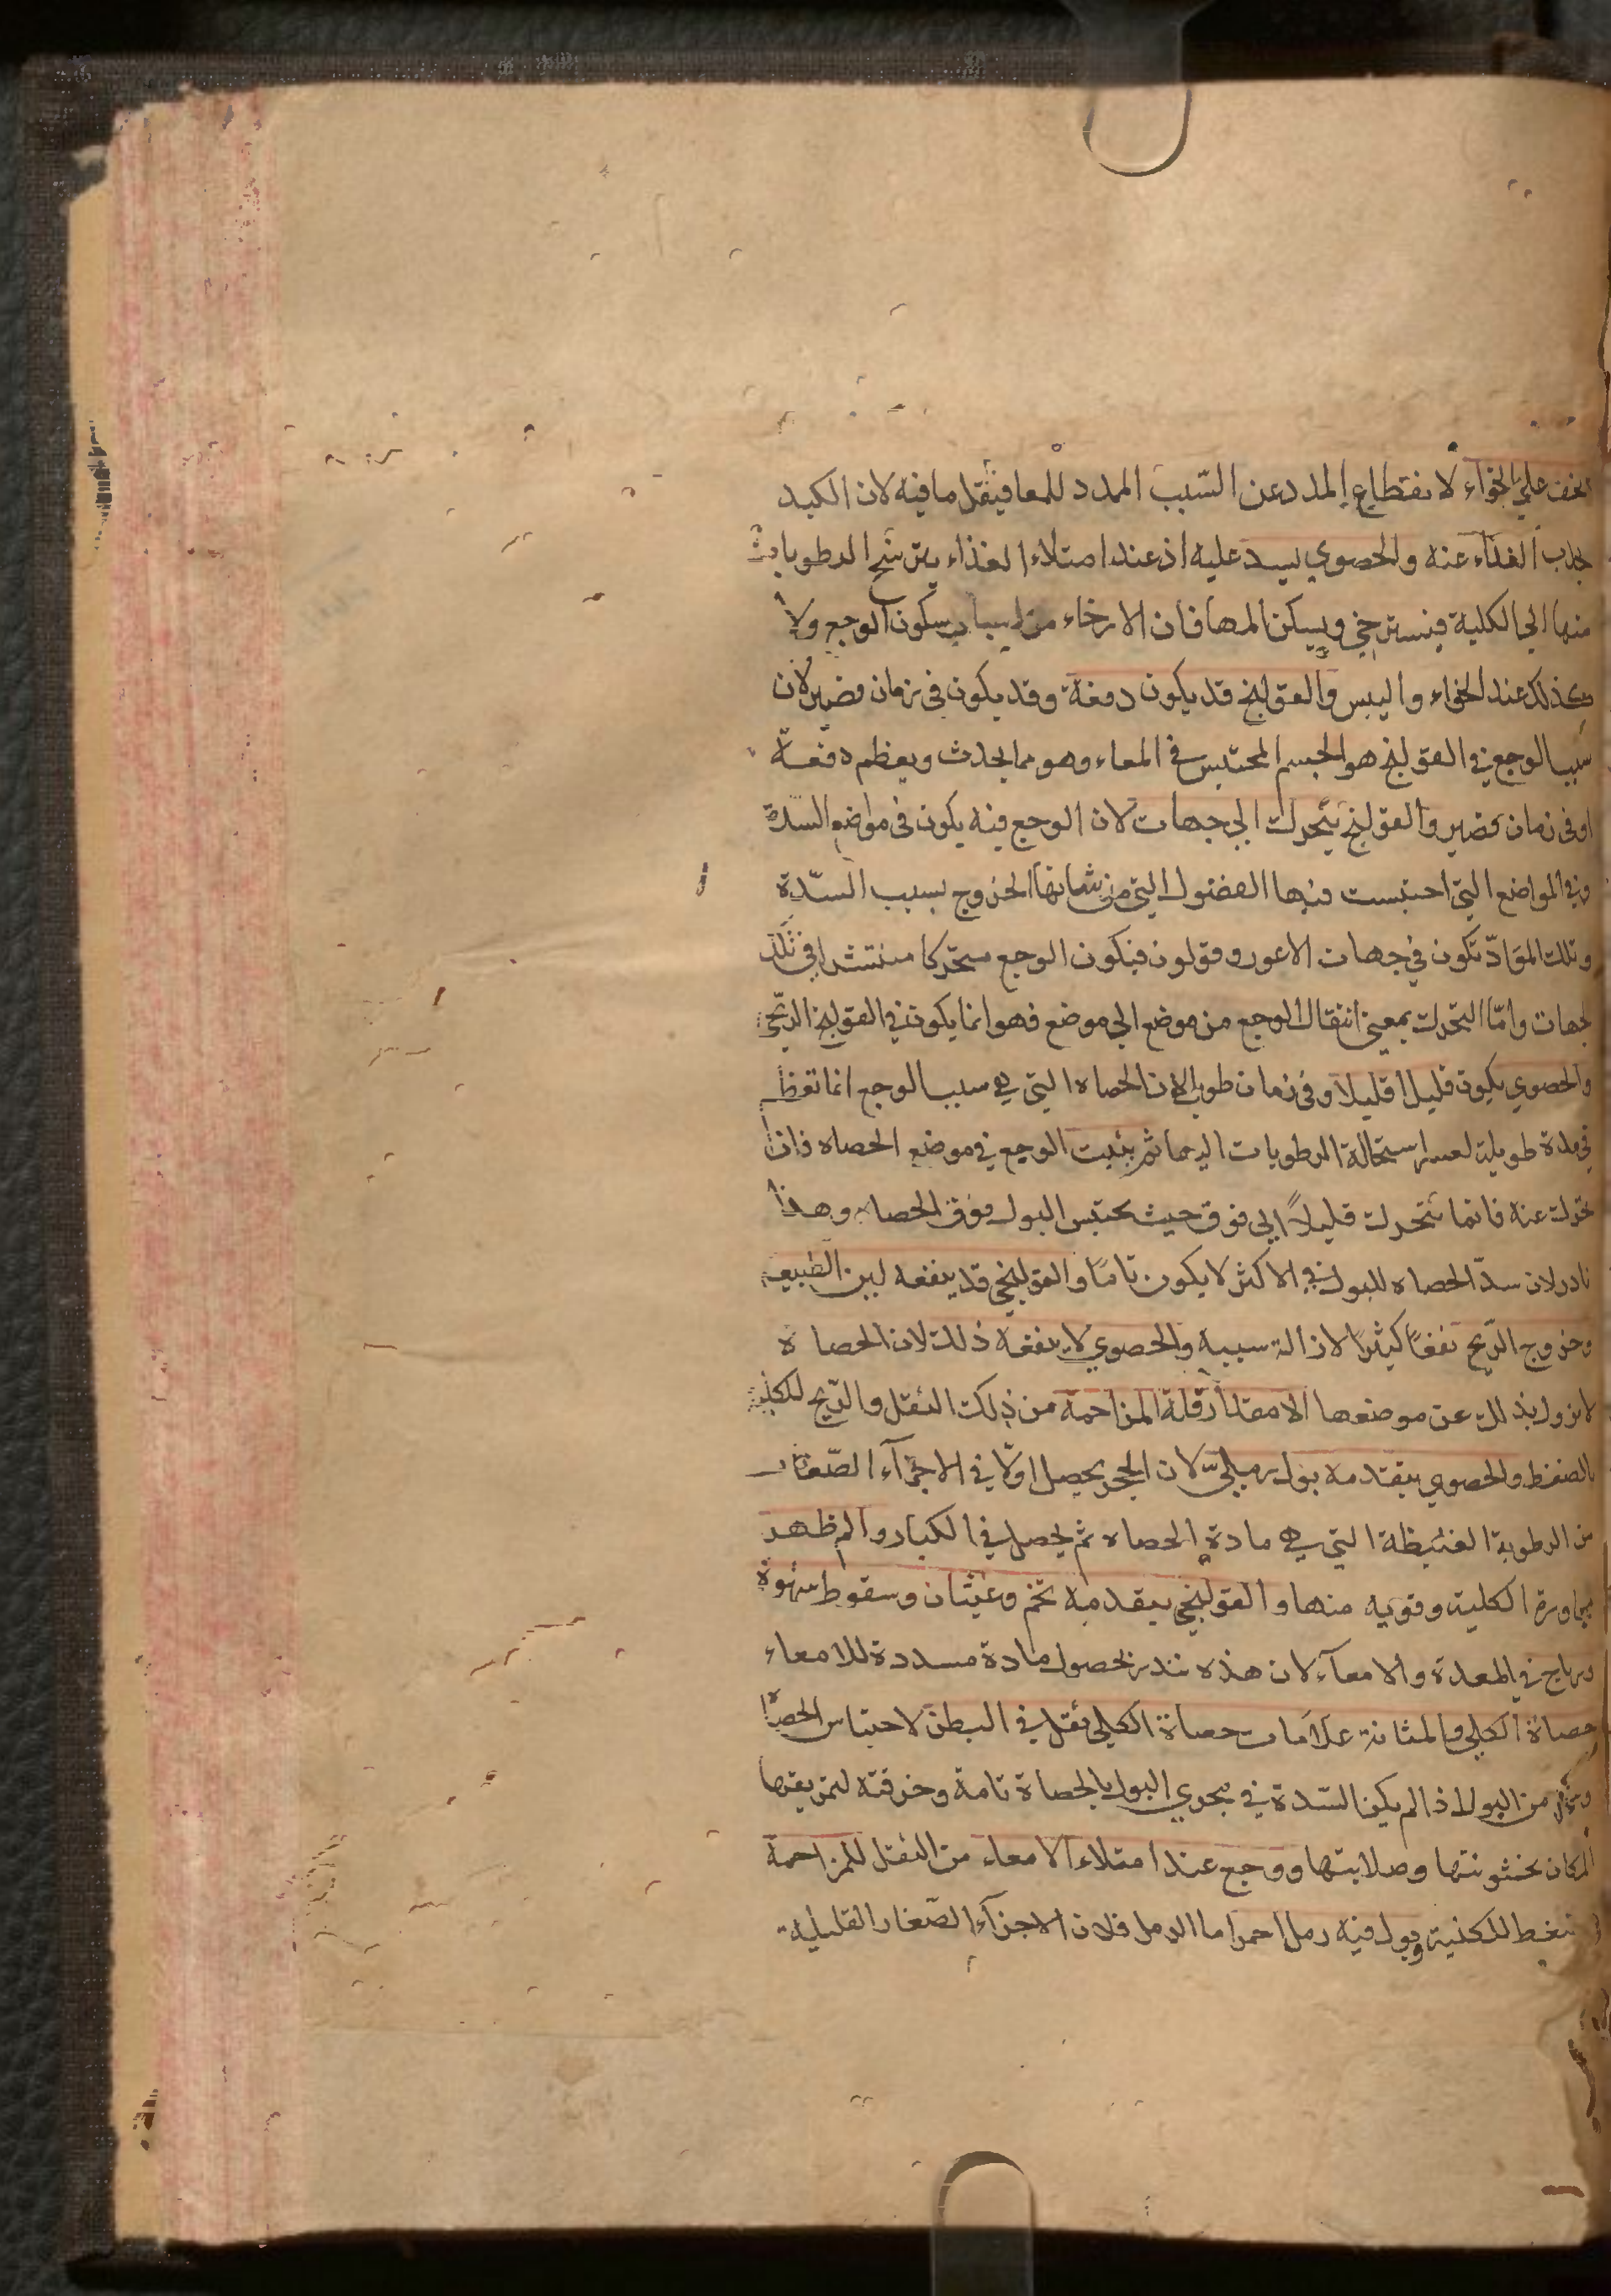 يخف علي الخواء لانقطاع المدد عن السبب الممدد للمعا فيقل ما فيه لان الكبد
جذب الغذاء عنه والحصوي يسد عليه اذ عند امتلاء الغذاء يترشح الرطوبات
منها الي الكلية فيسترخي ويسكن المها فان الارخاء من اسباب سكون الوجع ولا
كذلك عند الخواء واليبس والقولنج قد يكون دفعة وقد يكون في زمان قصير لان
سبب الوجع في القولنج هو الجسم المحتبس في المعاء وهو مما يحدث ويعظم دفعة
او في زمان قصير والقولنج يتحرك الي جهات لان الوجع فيه يكون في مواضع السدة
وفي المواضع التي احتبست فيها الفضول التي من شانها الخروج بسبب السّدة
وتلك الموادّ تكون في جهات الاعور وقولون فيكون الوجع متحركا منتشرا في تلك
الجهات وامّا التحرك بمعني انتقال الوجع من موضع الي موضع فهو انما يكون في القولنج الريحي
والحصوي يكون قليلا قليلا وفي زمان طويل لان الحصاه التي هي سبب الوجع انما تعظم
في مدة طويلة لعسر استحالة الرطوبات اليها ثم يثبت الوجع في موضع الحصاه فاذا
تحرك عنه فانما يتحرك قليلاً الي فوق حيث يحتبس البول فوق الحصاه وهذا
نادر لان سدّ الحصاه للبول في الاكثر لا يكون تامّا والقولنجي قد ينفعه لين الطبيعه
وخروج الرّيح نفعًا كثيرًا لازالة سببه والحصوي لا ينفعه ذلك لان الحصاة
لا يزول بذلك عن موضعها الا مقدار قلة المزاحمة من ذلك الثقل والرّيح للكلية
بالضغط والحصوي يتقدمه بول رمليّ لان الحجر يحصل اولا في الاجزآء الصّغار
من الرطوبة الغليظة التي هي مادة الحصاه ثم يحصل في الكبار والم ظهر
لمجاورة الكلية وقربه منها والقولنجي يتقدمه تخم وغثيان وسقوط شهوة
ورياح في المعدة والامعآء لان هذه تنذر بحصول مادة مسددة للامعاء
حصاة الكلي والمثانة علامات حصاة الكلي ثقل في البطن لاحتباس الحصاة
من البول اذا لم يكن السّدة في مجري البول بالحصاة تامة وحرقة لتمزيقها
المكان بخشونتها وصلابتها ووجع عند امتلاء الامعاء من الثقل للمزاحمة
للكلية وبول فيه رمل احمر اما الرمل فلان الاجزآء الصّغار القليلة